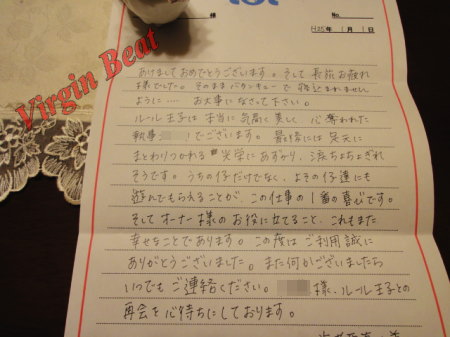 様
No.
H25年 1月 1日
あけましておめでとうございます。そして長旅お疲れ
様でした。そのままバタンキューで寝込まれません
ように…お大事になさって下さい。
ルール王子は本当に気高く美しく心奪われた
執事 でございます。最後には足元に
まとわりつかれる光栄にあずかり、涙ちょちょぎれ
そうです。うちの仔だけでなく、よその仔達にも
遊んでもらえることが、この仕事の1番の喜びです。
そしてオーナー様のお役に立てること、これもまた
幸せなことであります。この度はご利用誠に
ありがとうございました。また何かございましたら
いつでもご連絡ください。 様、ルール王子との
再会を心待ちにしております。
Virgin Beat